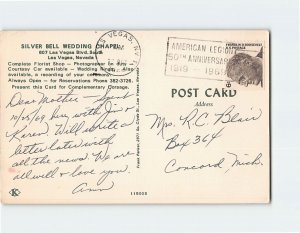 SILVER BELL WEDDING CHAPEL
607 Las Vegas Blvd. South
Las Vegas, Nevada
Complete Florist Shop — Photographer on
Courtesy Car available — Wedding Also
available, a recording of your ceremony.
Always Open Phone 382-3726.
Present this Card for Complementary Corsage.
VEGAS, NV
AMERICAN LEGION
50TH ANNIVERSARY
1919 - 1969
POST CARD
Address
Dear Mother — Spent
10/25/69 here with Jim &
Karen. Will write a
letter later with
all the news. We are
all well & love you.
Ann
Mrs. R.C. Blair
Box 364
Concord, Mich.
K
118005